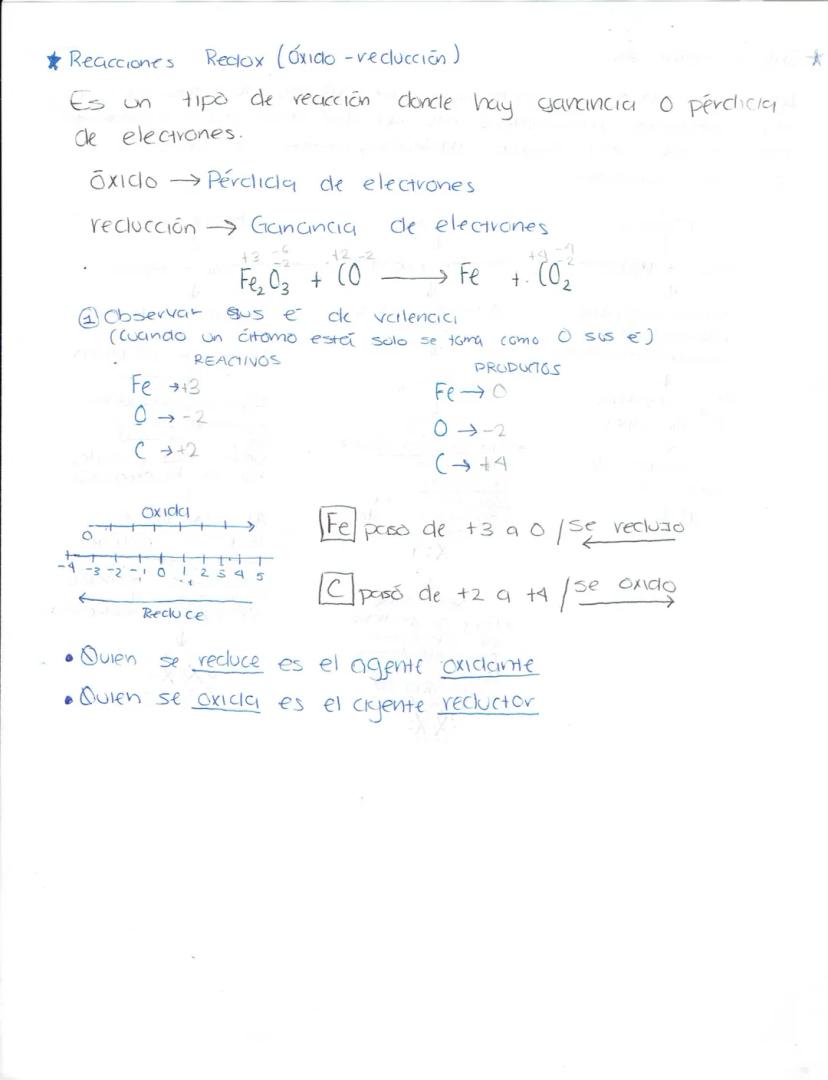 ★ Reacciones Redox (Óxido - reducción)
Es un tipo de reacción donde hay ganancia o pérdida
de electrones.
óxido → Pérdida de electrones
reducción → Ganancia de electrones
+3 -6 +2 -2 +4 -4
-2 -2
Fe₂O₃ + CO ⟶ Fe + CO₂
① Observar sus e⁻ de valencia
(Cuando un átomo está solo se toma como 0 sus e⁻)
REACTIVOS PRODUCTOS
Fe → +3 Fe → 0
O → -2 O → -2
C → +2 C → +4
oxida
0
-4 -3 -2 -1 0 1 2 3 4 5
Reduce
Fe paso de +3 a 0 / se redujo
C pasó de +2 a +4 / se oxido
• Quien se reduce es el agente oxidante
• Quien se oxida es el agente reductor